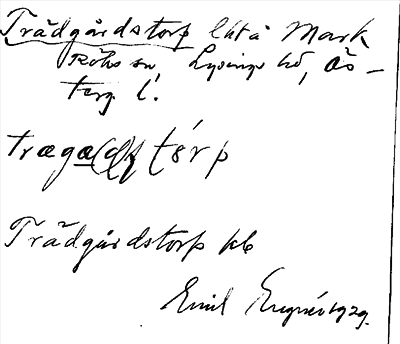 Trädgårdstorp lht å Mark
Röks sn, Lysings hd, Ös-
terg. l.
træga(d)s tórp
Trädgårdstorp kb
Emil Engnér 1929.